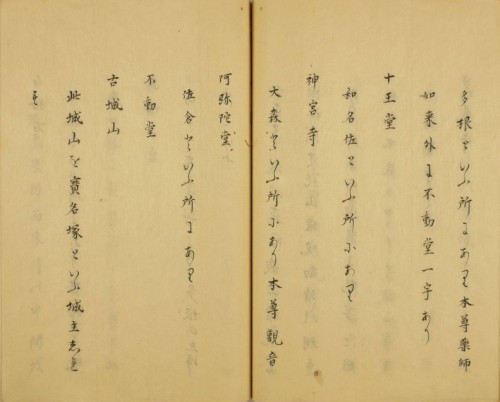 多根といふ所にあり本尊薬師
如来外に不動堂一宇あり
十王堂
知名佐といふ所にあり
神宮寺
大森といふ所にあり本尊観音
阿弥陀堂
佐倉といふ所にあり
不動堂
古城山
此城山を実名塚といふ城主志れ
す